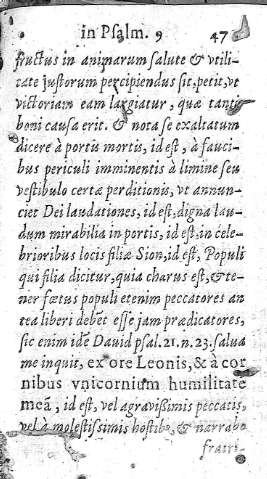 in Psalm. 9 47
fructus in animarum salute & vtili-
tate justorum percipiendus sit, petit, vt
victoriam eam largiatur, quæ tanti
boni causa erit. & nota se exaltatum
dicere à portis mortis, id est, à fauci-
bus periculi imminentis à limine seu
vestibulo certæ perditionis, vt annun-
ciet Dei laudationes, id est, digna lau-
dum mirabilia in portis, id est, in cele-
brioribus locis filiæ Sion, id est, Populi
qui filia dicitur, quia charus est, & te-
ner fœtus populi etenim peccatores an
tea liberi debẽt esse jam prædicatores,
sic enim idẽ Dauid psal. 21. n. 23. salua
me inquit, ex ore Leonis, & à cor
nibus vnicornium humilitate
meã, id est, vel agravissimis peccatis,
vel à molestissimis hostibꝰ, & narrabo
fratri-